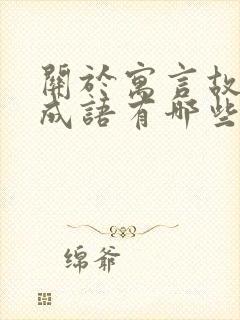 關於寓言故
成語有哪些
绵爺